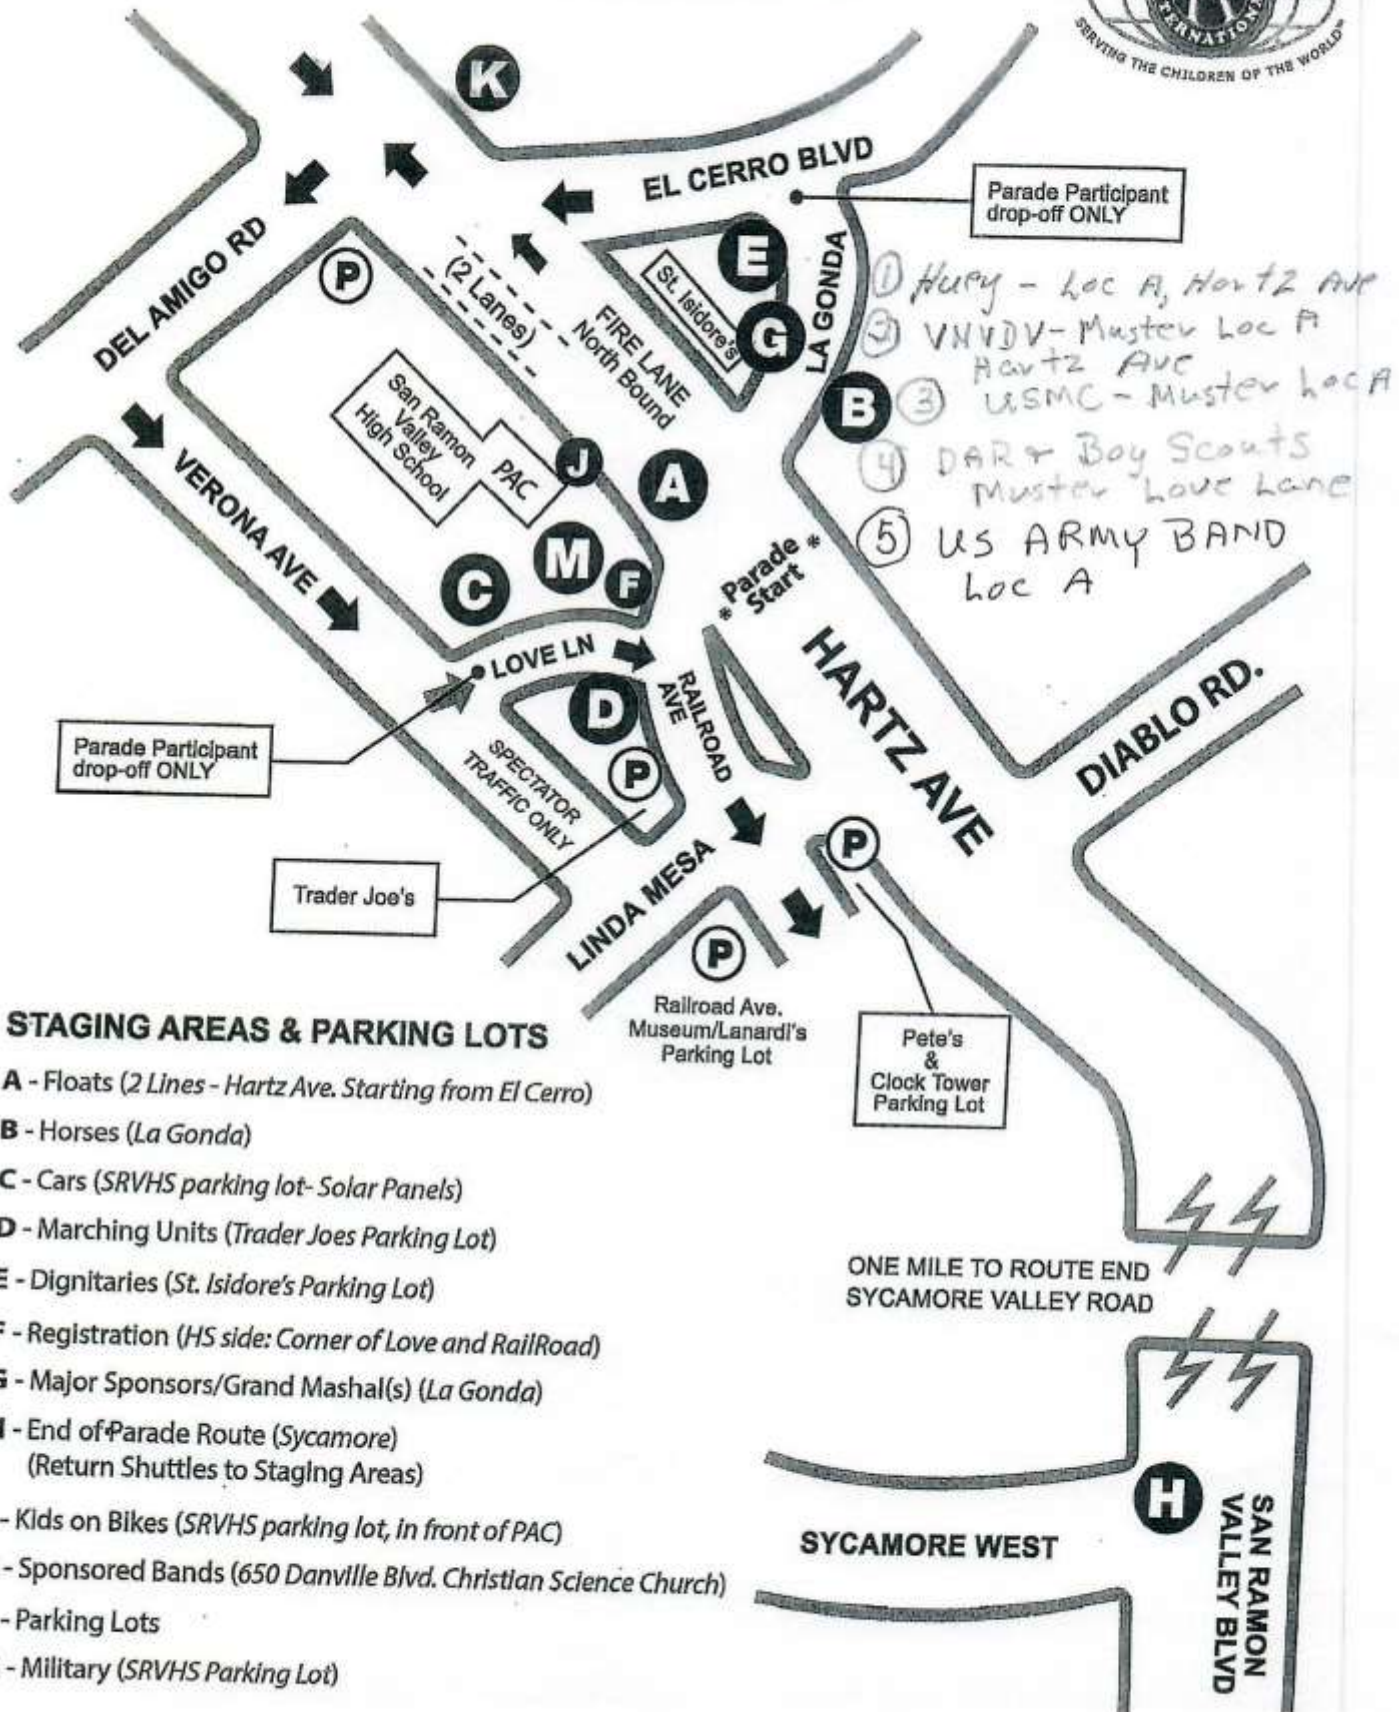 TERNATION
SERVING THE CHILDREN OF THE WORLD™
K
EL CERRO BLVD
Parade Participant
drop-off ONLY
DEL AMIGO RD
P
(2 Lanes)
FIRE LANE
North Bound
St. Isidore's
E
G
LA GONDA
B
① Huey - Loc A, Hartz Ave
② VNVDV - Muster Loc A
Hartz Ave
③ USMC - Muster Loc A
④ DAR + Boy Scouts
Muster Love Lane
⑤ US ARMY BAND
Loc A
San Ramon
Valley
High School
PAC
J
A
VERONA AVE
M
C
F
* Parade *
Start
LOVE LN
RAILROAD
AVE
HARTZ AVE
DIABLO RD.
D
P
Parade Participant
drop-off ONLY
SPECTATOR
TRAFFIC ONLY
Trader Joe's
LINDA MESA
P
P
Railroad Ave.
Museum/Lanardi's
Parking Lot
Pete's
&
Clock Tower
Parking Lot
STAGING AREAS & PARKING LOTS
A - Floats (2 Lines - Hartz Ave. Starting from El Cerro)
B - Horses (La Gonda)
C - Cars (SRVHS parking lot- Solar Panels)
D - Marching Units (Trader Joes Parking Lot)
E - Dignitaries (St. Isidore's Parking Lot)
F - Registration (HS side: Corner of Love and RailRoad)
G - Major Sponsors/Grand Mashal(s) (La Gonda)
- End of Parade Route (Sycamore)
(Return Shuttles to Staging Areas)
- Kids on Bikes (SRVHS parking lot, in front of PAC)
- Sponsored Bands (650 Danville Blvd. Christian Science Church)
- Parking Lots
- Military (SRVHS Parking Lot)
ONE MILE TO ROUTE END
SYCAMORE VALLEY ROAD
H
SYCAMORE WEST
SAN RAMON
VALLEY BLVD